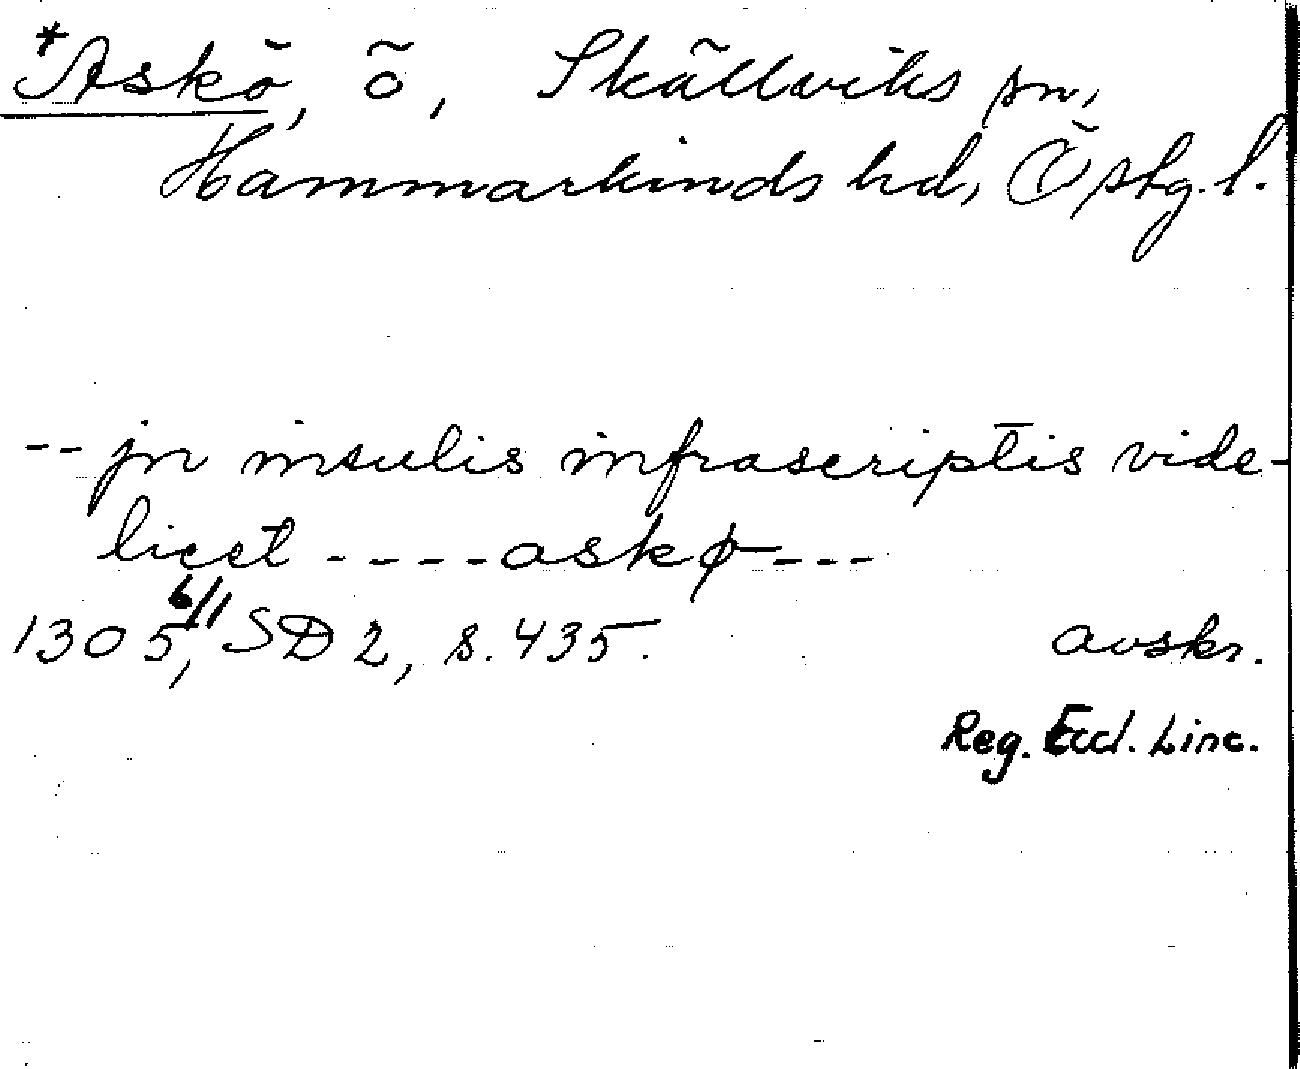 *Askö, ö, Skällviks sn,
Hammarkinds hd, Östg.l.
-- jn insulis infrascriptis vide-
licet ---- askø ---
1305 6/11, SD 2, s. 435. avskr.
Reg. Eccl. Linc.